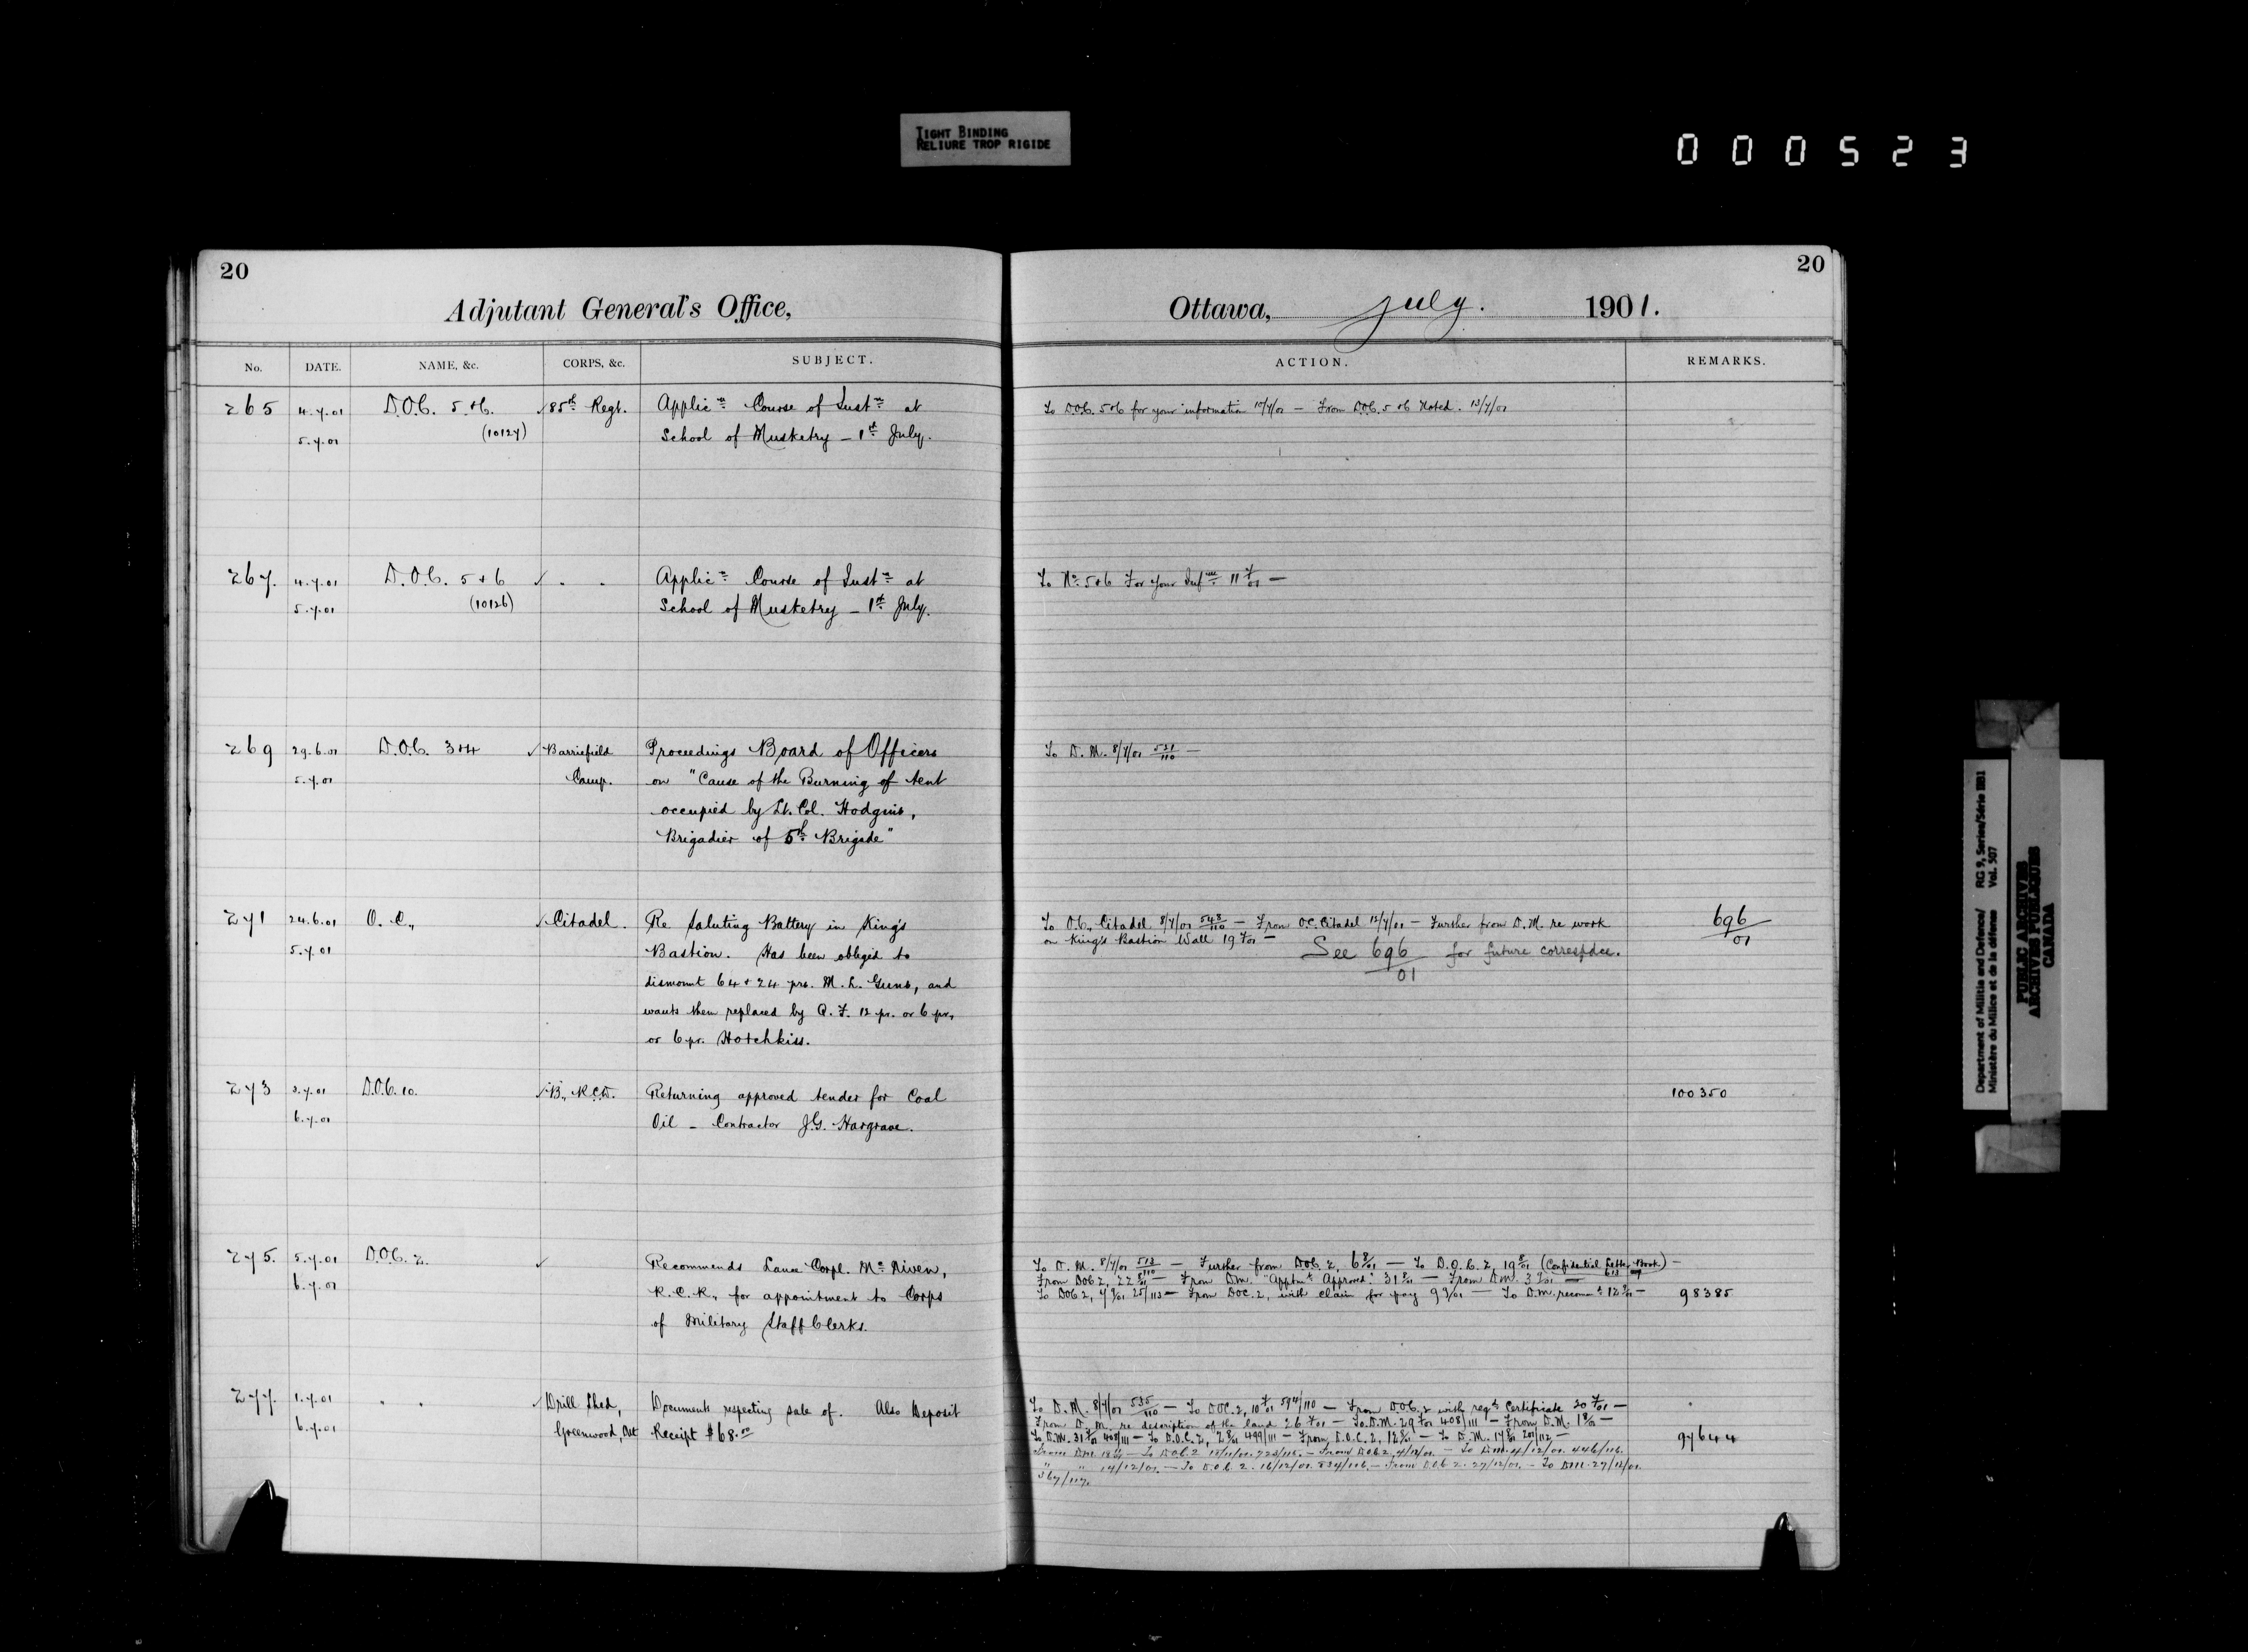 TIGHT BINDING
RELIURE TROP RIGIDE
000523
20
Adjutant General's Office,
No. DATE. NAME, &c. CORPS, &c. SUBJECT.
265 4.7.01 D.O.C. 5+6. ✓85th Regt. Applicn Course of Instn at
5.7.01 (10127) School of Musketry – 1st July.
267. 4.7.01 D.O.C. 5+6 ✓ " " Applicn Course of Instn at
5.7.01 (10126) School of Musketry – 1st July.
269 29.6.01 D.O.C. 3+4 ✓Barriefield Proceedings Board of Officers
5.7.01 Camp. on "Cause of the Burning of tent
occupied by Lt. Col. Hodgins,
Brigadier of 5th Brigade"
271 24.6.01 O.C., ✓Citadel. Re Saluting Battery in King's
5.7.01 Bastion. Has been obliged to
dismount 64 + 24 prs. M.L. Guns, and
wants them replaced by Q.F. 12 pr. or 6 pr,
or 6 pr. Hotchkiss.
273 3.7.01 D.O.C. 10. ✓"B", R.C.D. Returning approved tender for Coal
6.7.01 Oil – Contractor J.G. Hargrave.
275. 5.7.01 D.O.C. 2. ✓ Recommends Lance Corpl. McNiven,
6.7.01 R.C.R., for appointment to Corps
of Military Staff Clerks.
277. 1.7.01 " " ✓Drill Shed, Documents respecting sale of. Also Deposit
6.7.01 Greenwood, Ont Receipt $68.00
20
Ottawa, July. 1901.
ACTION. REMARKS.
To D.O.C. 5+6 for your information 10/7/01 – From D.O.C. 5+6 Noted. 13/7/01
To No. 5+6 For your Infn 11 7/01 –
To D.M. 8/7/01 531/110 –
To O.C., Citadel 8/7/01 543/110 – From O.C. Citadel 12/7/01 – Further from D.M. re work 696/01
on King's Bastion Wall 19 7/01 –
See 696/01 for future correspdce.
100350
To D.M. 8/7/01 512/110 – Further from DOC. 2, 6 8/01 – To D.O.C. 2, 19 8/01 (Confidential Letter Book) –
From DOC 2, 22 8/01 – From D.M. "Apptmt Approved." 31 8/01 – From D.M. 3 9/01 –
To DOC 2, 7 9/01 25/113 – From DOC. 2, with claim for pay 9 9/01 – To D.M. recomd 12 9/01 – 98385
To D.M. 8/7/01 535/110 – To DOC. 2, 10 7/01 594/110 – From D.O.C. 2 with reqd Certificate 20 7/01 –
From D.M. re description of the land 26 7/01 – To D.M. 29 7/01 408/111 – From D.M. 1 8/01 –
To D.M. 31 7/01 408/111 – To D.O.C. 2, 2 8/01 499/111 – From D.O.C. 2, 12 8/01 – To D.M. 17 8/01 201/112 – 97644
– From D.O.C. 2. 4/12/01. – To D.M. 4/12/01. 446/116.
" " 14/12/01. – To D.O.C. 2. 16/12/01. 834/116. – From D.O.C. 2. 27/12/01. – To D.M. 27/12/01.
367/117.
Department of Militia and Defence/ RG 9, Series/Série IIB1
Ministère du Milice et de la défense Vol. 507
PUBLIC ARCHIVES
ARCHIVES PUBLIQUES
CANADA